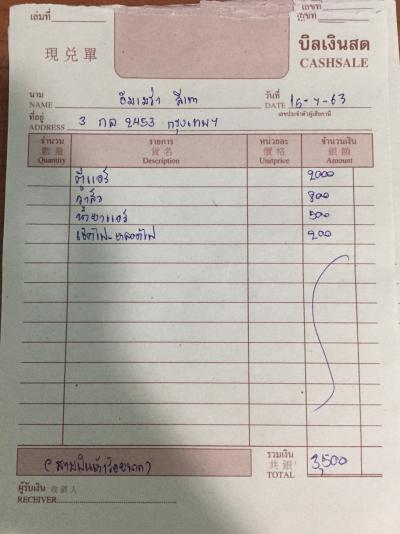 เล่มที่
เลขที่
現兌單
บิลเงินสด
CASHSALE
นาม
NAME
วันที่
DATE 15-7-63
ที่อยู่
ADDRESS 3 กฮ 2453 กรุงเทพฯ
เลขประจำตัวผู้เสียภาษี
จำนวน รายการ หน่วยละ จำนวนเงิน
數量 貨名 價格 銀額
Quantity Description Unitprice Amount
ตู้แอร์ 2000
800
น้ำยาแอร์ 500
เช็คไฟ-หลอดไฟ 200
(สามพันห้าร้อยบาท)
รวมเงิน
共銀
TOTAL 3,500
ผู้รับเงิน 收銀人
RECEIVER